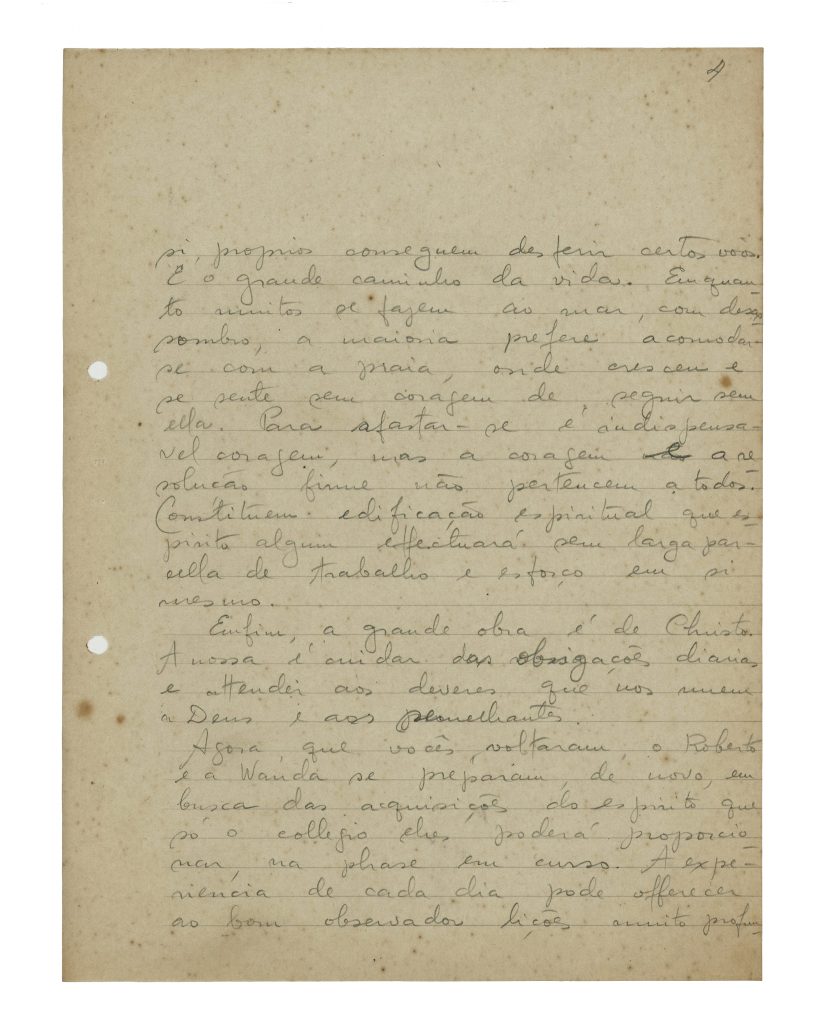 4
si proprios conseguem desferir certos vôos.
E' o grande caminho da vida. Emquan-
to muitos se fazem ao mar, com desas-
sombro, a maioria prefere acomodar-
se com a praia, onde cresceu e
se sente sem coragem de seguir sem
ella. Para afastar-se é indispensa-
vel coragem, mas a coragem e a re
solucão firme não pertencem a todos.
Constituem edificação espiritual que es-
pirito algum effectuará sem larga par-
cella de trabalho e esforço em si
mesmo.
Emfim, a grande obra é de Christo.
A nossa é cuidar das obrigações diarias
e attender aos deveres que nos unem
a Deus e aos semelhantes.
Agora que vocês voltaram, o Roberto
e a Wanda se preparam, de novo, em
busca das acquisições do espirito que
só o collegio lhes poderá proporcio
nar, na phase em curso. A expe-
riencia de cada dia pode offerecer
ao bom observador lições muito profun-